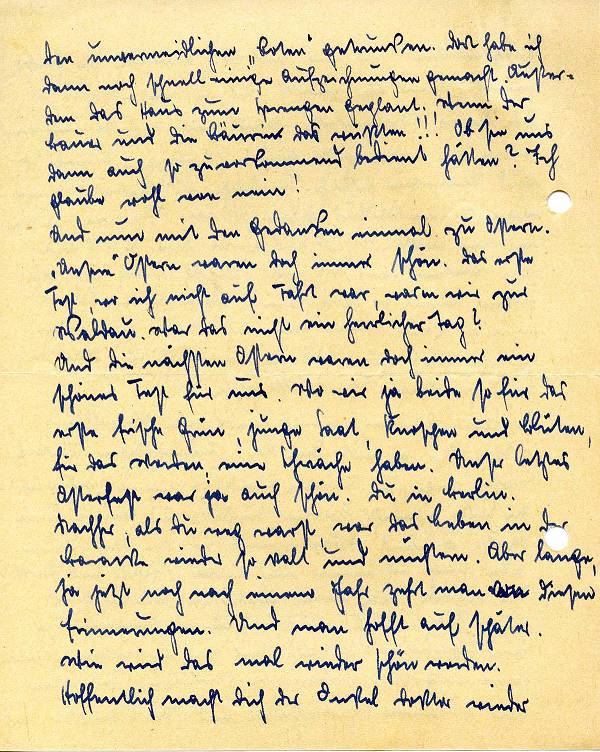 den unvermeidlichen „Boten" getrunken. Dort habe ich
dann noch schnell einige Aufzeichnungen gemacht. Außer-
dem das Haus zum Sprengen geplant. Wenn der
Bauer und die Bäuerin das wüßten!!! Ob sie uns
dann auch so zuvorkommend bedient hätten? Ich
glaube wohl von nein!
Und nun mit den Gedanken einmal zu Ostern.
„Unsere" Ostern waren doch immer schön. Das erste
Fest, wo ich nicht auf Fahrt war, waren wir zur
Waldau. War das nicht ein herrlicher Tag?
Und die nächsten Ostern waren doch immer ein
schönes Fest für uns. Wo wir ja beide so für das
erste frische Grün, junge Saat, Knospen und Blüten,
für das Werden, eine Schwäche haben. Unser letztes
Osterfest war ja auch schön. Du in Berlin.
Nachher, als Du weg warst, war das Leben in der
Baracke wieder so kalt und nüchtern. Aber lange,
ja jetzt noch nach einem Jahr zehrt man von diesen
Erinnerungen. Und man hofft auf später.
Wie wird das mal wieder schön werden.
Hoffentlich macht Dich der Onkel Doktor wieder